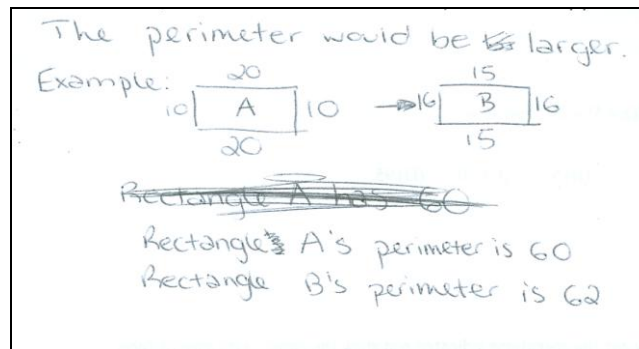 The perimeter would be larger.
Example:
20
10 A 10
20
15
16 B 16
15
Rectangle A has 60
Rectangle A's perimeter is 60
Rectangle B's perimeter is 62